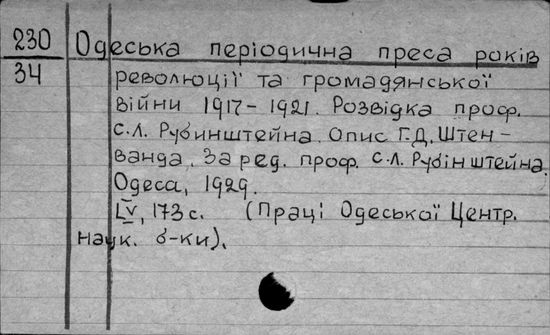 230
34
Одеська періодична преса років
революції та громадянської
війни 1917-1921. Розвідка проф.
С.Л. Рубинштейна. Опис Г.Д. Штен-
ванда. За ред. проф. С.Л. Рубінштейна.
Одеса, 1929.
LV, 173 с. (Праці Одеської Центр.
наук. б-ки).